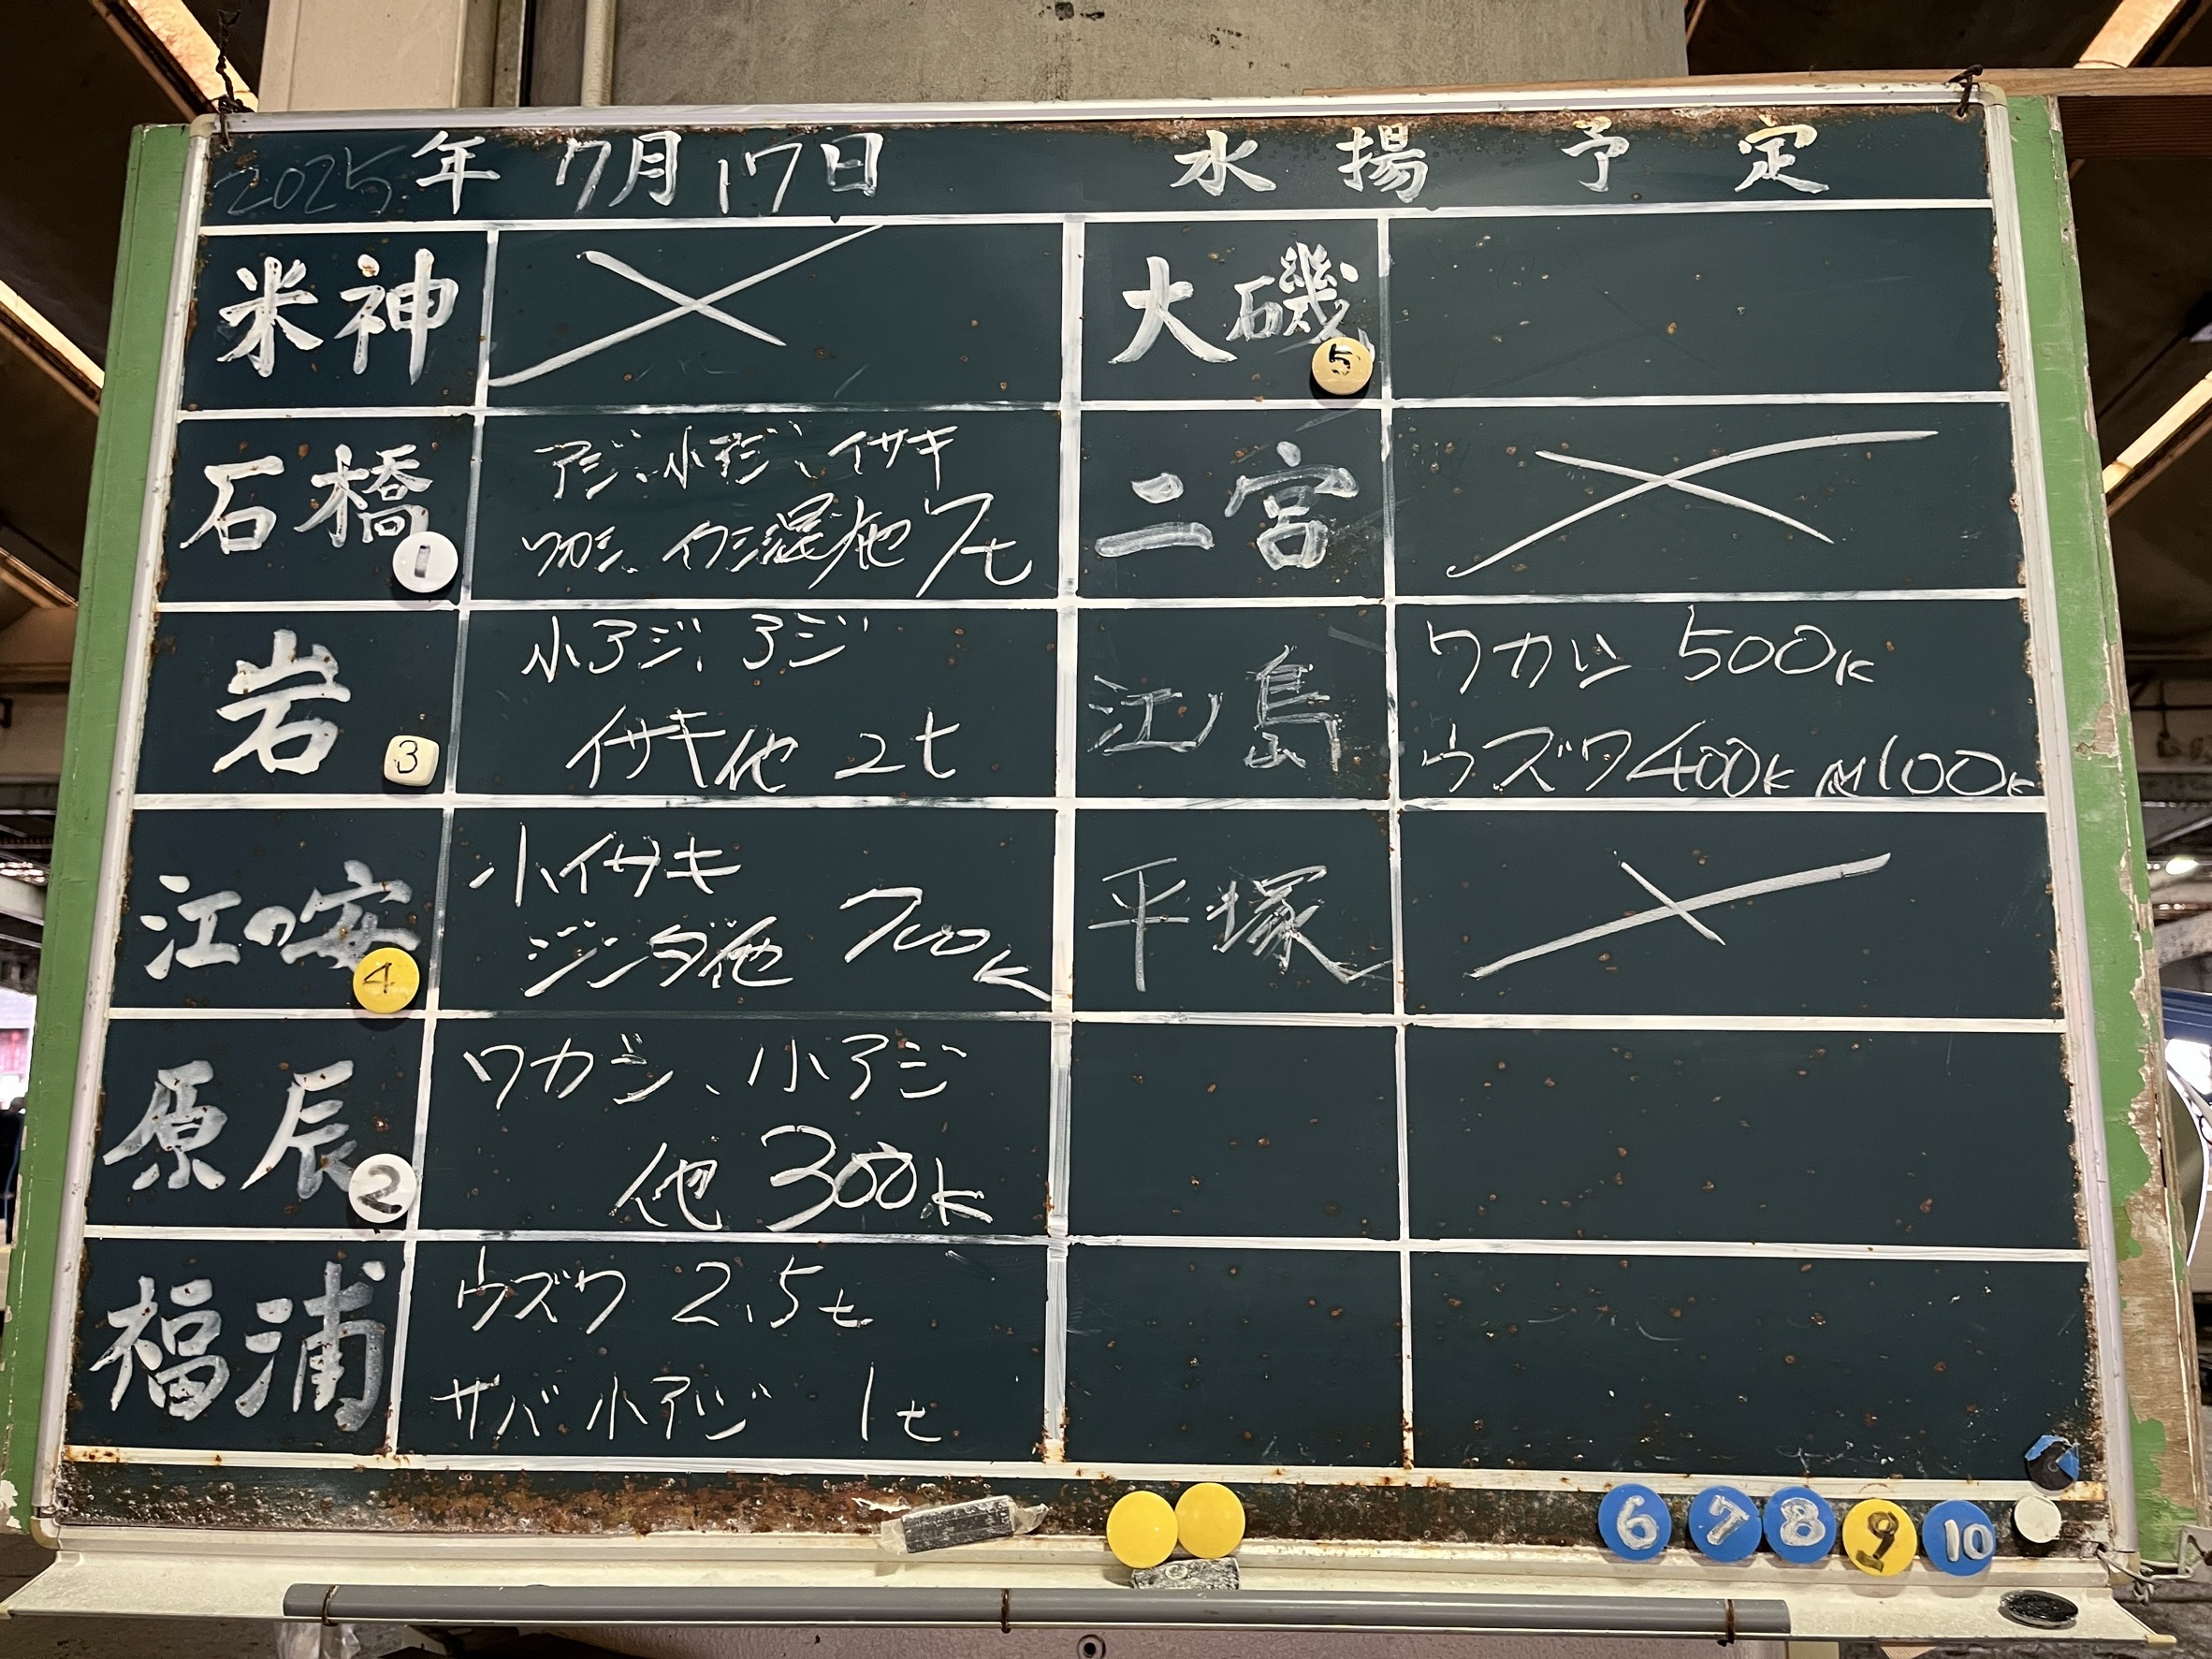 2025年 7月17日 水揚予定
米神
石橋
1
アジ、小アジ、イサキ
ワカシ、イワシ混他 7t
岩
3
小アジ、アジ
イサキ他 2t
江の安
4
小イサキ
ジンダ他 700K
原辰
2
ワカシ、小アジ
他 300K
福浦
ウズワ 2.5t
サバ 小アジ 1t
大磯
5
二宮
江ノ島
ワカシ 500K
ウズワ 400K 100K
平塚
6 7 8 9 10